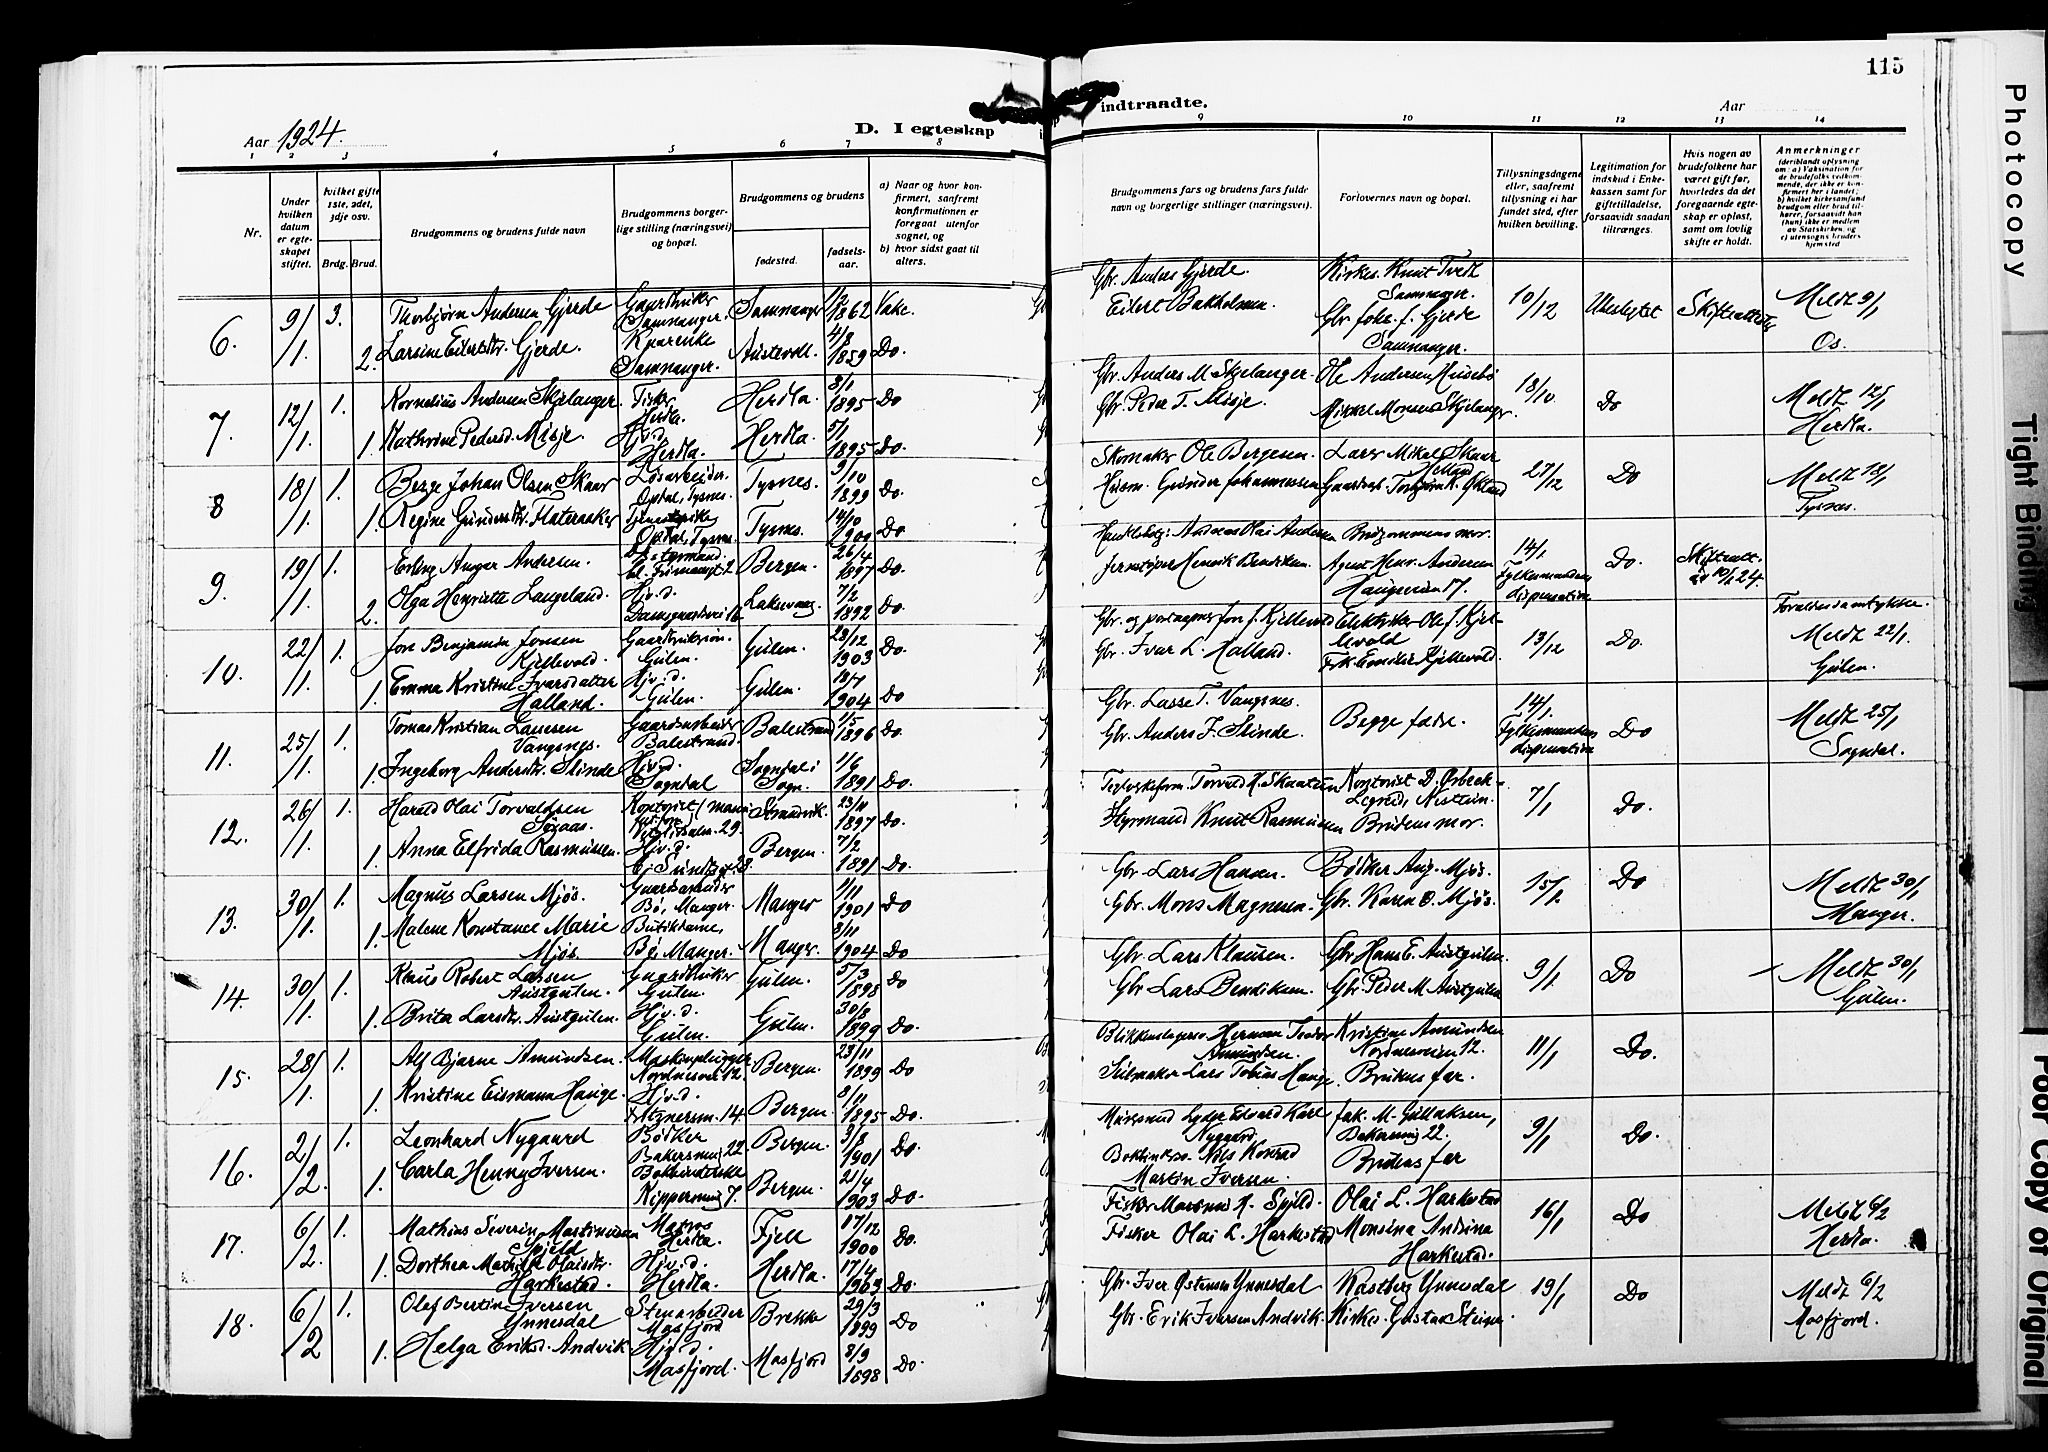 115
Photocopy
Tight Binding
Poor Copy of Original
Aar 1924.
D. I egteskap
indtraadte.
Aar
1 2 3 4 5 6 7 8
9 10 11 12 13 14
Nr.
Under hvilken datum er egteskapet stiftet.
hvilket gifte 1ste, 2det, 3dje osv.
Brdg. Brud.
Brudgommens og brudens fulde navn
Brudgommens borgerlige stilling (næringsvei) og bopæl.
Brudgommens og brudens
fødested.
fødselsaar.
a) Naar og hvor konfirmert, saafremt konfirmationen er foregaat utenfor sognet, og
b) hvor sidst gaat til alters.
Brudgommens fars og brudens fars fulde navn og borgerlige stillinger (næringsvei).
Forlovernes navn og bopæl.
Tillysningsdagene eller, saafremt tillysning ei har fundet sted, efter hvilken bevilling.
Legitimation for indskud i Enkekassen samt for giftetilladelse, forsaavidt saadan tiltrænges.
Hvis nogen av brudefolkene har været gift før, hvorledes da det foregaaende egteskap er opløst, samt om lovlig skifte er holdt.
Anmerkninger
6. 9/1. 3. Thorbjørn Andersen Gjerde Gaardbruker Samnanger. Samnanger 1862 Vake.
2. Larsine Eilertsdtr. Gjerde. Samnanger. Austevoll. 4/8 1859 Do.
Gbr. Anders Gjerde. Kirkes. Knut Tvedt Samnanger. 10/12 Ubeslegtet Skifteattester Meldt 9/1 Os.
Eilert Bakholmen. Gbr. Johs. J. Gjerde Samnanger.
7. 12/1. 1. Kornelius Andersen Skjelanger. Fisker Herdla. Herdla. 8/1 1895 Do
1. Kathrine Pedersd. Misje. Hjv.d. Herdla. Herdla. 5/1 1895 Do.
Gbr. Anders M. Skjelanger. Ole Andersen Husebø 18/10 Do Meldt 12/1 Herdla.
Gbr. Peder T. Misje. Mikkel Monsen Skjelanger.
8 18/1. 1. Berge Johan Olsen Skaar Løsarbeider. Opdal, Tysnes. Tysnes. 9/10 1899 Do.
1. Regine Gundersdtr. Flateraaker Opdal, Tysnes. Tysnes. 14/10 1900 Do.
Skomaker Ole Bergesen. Lars Mikal Skaar 27/12 Do Meldt 18/1 Tysnes.
Husm. Gunder Johannessen
9. 19/1. 1. Erling Ansgar Andersen. Bergen. 26/4 1897 Do.
2. Olga Henriette Langeland. Hjv.d. Damsgaardsvei 16 Laksevaag. 7/2 1892 Do.
Andreas Olai Andersen Brudgommens mor. 14/1 Fylkesmandens dispensation Do. Skifteatt. av 10/1 24.
Henrik Bendiksen. Agent Henr. Andersen Haugeveien 17.
10. 22/1. 1. Jon Benjamin Jonsen Kjellevold. Gaardbrukersøn. Gulen. Gulen. 23/12 1903 Do.
1. Emma Kristine Iversdatter Halland. Hjv.d. Gulen. Gulen. 1904 Do
Gbr. og Jon J. Kjellevold Elektriker Ole J. Kjellevold 13/12 Do. Forældresamtykke. Meldt 22/1. Gulen.
Gbr. Ivar L. Halland. Frk. Kjellevold.
11. 25/1. 1. Tomas Kristian Lassesen Vangsnes. Gaardsarbeider Balestrand. Balestrand 1/5 1896 Do.
1. Ingeborg Andersdtr. Slinde Hjv.d. Sogndal Sogndal i Sogn. 1/6 1891 Do.
Gbr. Lasse T. Vangsnes. Begge fædre. 14/1. Fylkesmandens dispensation Do Meldt 25/1 Sogndal.
Gbr. Anders J. Slinde.
12. 26/1. 1. Harald Olai Torvaldsen Søraas. Strandvik. 23/11 1897 Do.
1. Anna Elfrida Rasmussen. Hjv.d. Bergen. 7/2 1891 Do.
Kontorist D. Ørbeck- Nesttun. 7/1 Do.
Styrmand Knut Rasmussen Brudens mor.
13. 30/1. 1. Magnus Larsen Mjøs. Gaardsarbeider Bø, Manger. Manger 1/11 1901 Do
1. Malene Konstance Marie Mjøs. Butikdame, Bø, Manger. Manger. 8/11 1904 Do
Gbr. Lars Hansen. Bødker Aug. Mjøs. 15/1. Do Meldt 30/1 Manger.
Gbr. Mons Magnesen. Gbr. Karen O. Mjøs.
14. 30/1. 1. Klaus Robert Larsen Austgulen. Gaardbruker Gulen. Gulen. 5/3 1898 Do
1. Brita Larsdtr. Austgulen. Hjv.d. Gulen. Gulen. 30/8 1899 Do.
Gbr. Lars Klausen. Gbr Hans E. Austgulen. 9/1 Do Meldt 30/1 Gulen.
Gbr. Lars Bendiksen. Gbr. Peder M Austgulen
15. 28/1. 1. Alf Bjarne Amundsen. Maskinplugger Nordnesvei 12. Bergen. 23/11 1899 Do
1. Kristine Eismann Hauge. Hjv.d. Bergen. 8/11 1895 Do.
Blikkenslager Herman Teodor Amundsen. Kristine Amundsen Nordnesveien 12. 11/1 Do.
Seilmaker Lars Tobias Hauge. Brudens far.
16. 2/2. 1. Leonhard Nygaard Bødker Bakersmug 22. Bergen. 9/8 1901 Do.
1. Carla Henny Iversen. Kippersmug 7. Bergen. 21/4 1903 Do.
Murersvend Lyder Edvard Karl Nygaard, Jak. M. Gullaksen, Bakersmug 22. 9/1 Do.
Nils Konrad Martin Iversen. Brudens far
17. 6/2. 1. Mathius Severin Martinusen Spjeld Matros Herdla. Fjell 17/12 1900 Do.
1. Dorthea Mathilde Olaisdtr. Harkestad. Hjv.d. Herdla. Herdla. 17/4 1903 Do.
Fisker A. Spjeld. Olai L. Harkestad 16/1 Do Meldt 6/2 Herdla.
Fisker Olai L. Harkestad Monsina Andrina Harkestad.
18. 6/2 1. Olaf Bertin Iversen Ynnesdal Stenarbeider Masfjord Brekke 29/3 1899 Do
1. Helga Eriksd. Andvik Hjv.d. Masfjord. Masfjord 8/9 1898 Do.
Gbr. Iver Østensen Ynnesdal Ynnesdal 19/1 Do Meldt 6/2 Masfjord.
Gbr. Erik Iversen Andvik. Kirkes. Gustav Steine.